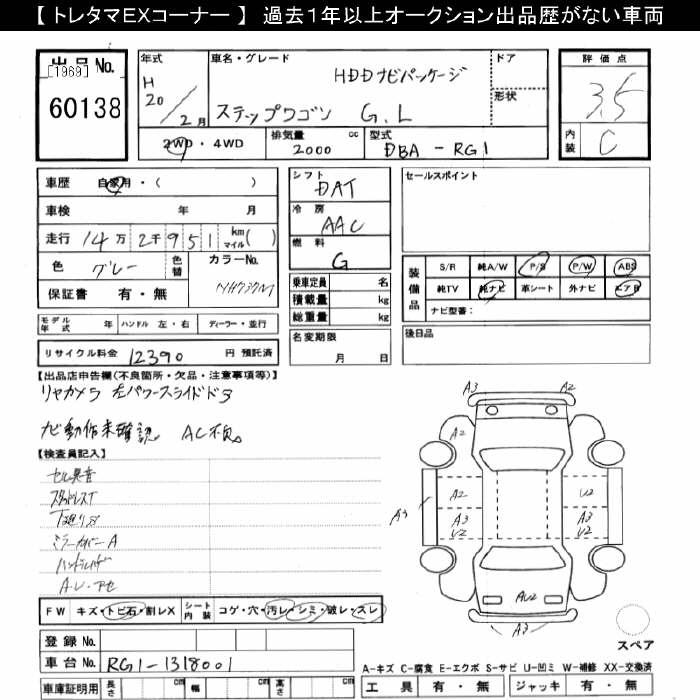 【 トレタマEXコーナー 】 過去1年以上オークション出品歴がない車両
出品 No.
[1969]
60138
年式
H
20/2月
車名・グレード
HDDナビパッケージ
ステップワゴン G.L
ドア
形状
2WD・4WD
排気量 cc
2000
型式
DBA - RG1
評価点
3.5
内装
C
車歴 自家用・( )
車検 年 月
走行 14万2千951 km マイル( )
色 グレー 色替
カラーNo.
NH737M
保証書 有・無
シフト
DAT
冷房
AAC
燃料
G
乗車定員 名
積載量 kg
総重量 kg
名変期限
月 日
セールスポイント
装備品
S/R 純A/W P/S P/W ABS
純TV 純ナビ 革シート 外ナビ エアB
ナビ型番:
後日品
モデル年式 年 ハンドル 左・右 ディーラー・並行
リサイクル料金 12390 円 預託済
【出品店申告欄(不良箇所・欠品・注意事項等)】
リヤカメラ 左パワースライドドア
ナビ動作未確認。 AC不良。
【検査員記入】
セル異音
下廻りサビ
ミラーカバーA
A.L・アセ
FW キズ・トビ石・割レX シート内装 コゲ・穴・汚レ・シミ・破レ・スレ
登録 No.
車台 No. RG1-1318001
車庫証明用 長さ cm 幅 cm 高さ cm
A3
A2
A2
A2
U2
A3
A3
U2
A3
U2
AU2
A3
スペア
A-キズ C-腐食 E-エクボ S-サビ U-凹ミ W-補修 XX-交換済
工具 有・無 ジャッキ 有・無